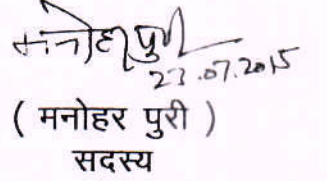 मनोहर पुरी
23.07.2015
( मनोहर पुरी )
सदस्य